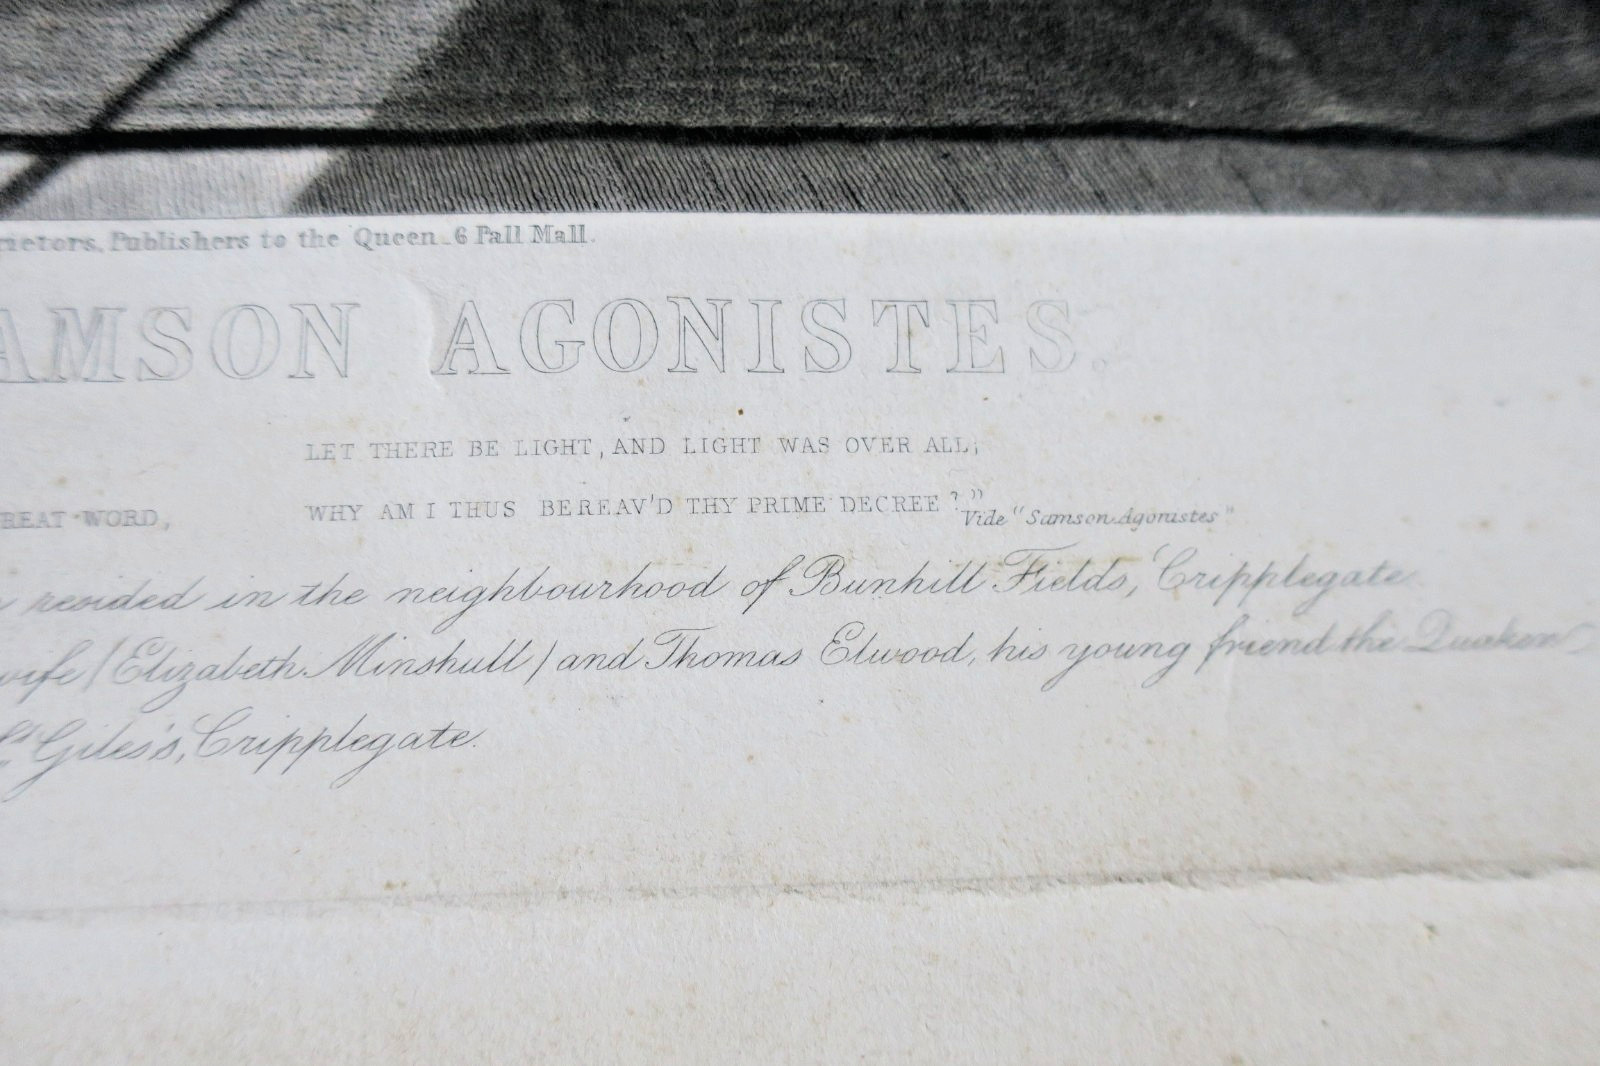 Publishers to the Queen. 6 Pall Mall.
AMSON AGONISTES.
LET THERE BE LIGHT, AND LIGHT WAS OVER ALL;
REAT WORD, WHY AM I THUS BEREAV'D THY PRIME DECREE?" Vide "Samson Agonistes"
resided in the neighbourhood of Bunhill Fields, Cripplegate
wife (Elizabeth Minshull) and Thomas Elwood, his young friend the Quaker
St Giles's, Cripplegate.